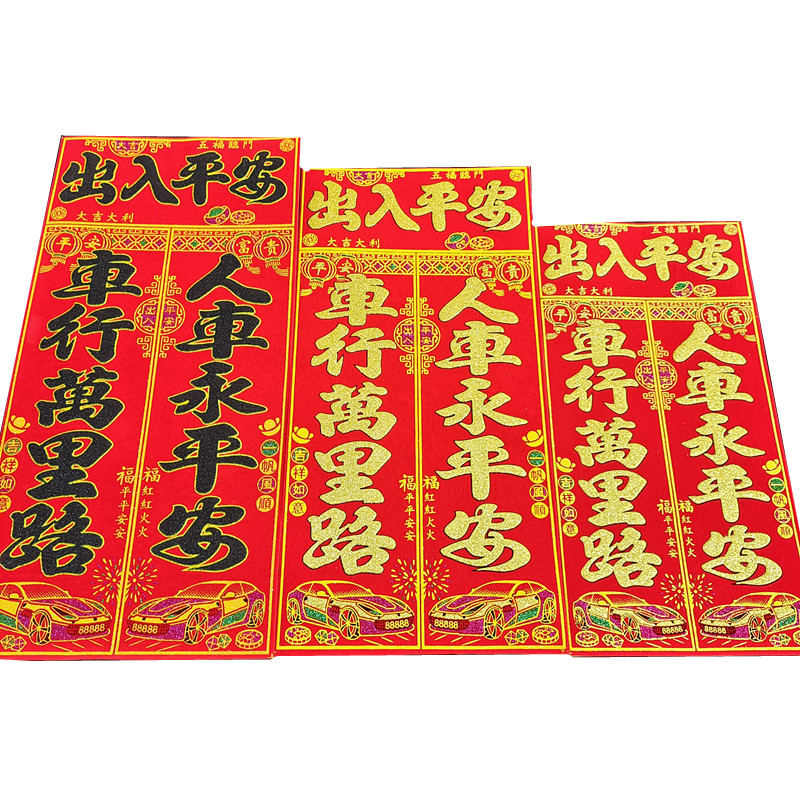 大吉
五福臨門
出入平安
大吉大利
平安
富貴
車行萬里路
人車永平安
出入平安
吉祥如意
一帆風順
福平平安安
福紅紅火火
88888
88888
大吉
五福臨門
出入平安
大吉大利
平安
富貴
車行萬里路
人車永平安
出入平安
吉祥如意
一帆風順
福平平安安
福紅紅火火
88888
88888
五福臨門
出入平安
大吉大利
平安
富貴
車行萬里路
人車永平安
出入平安
吉祥如意
一帆風順
福平平安安
福紅紅火火
88888
88888